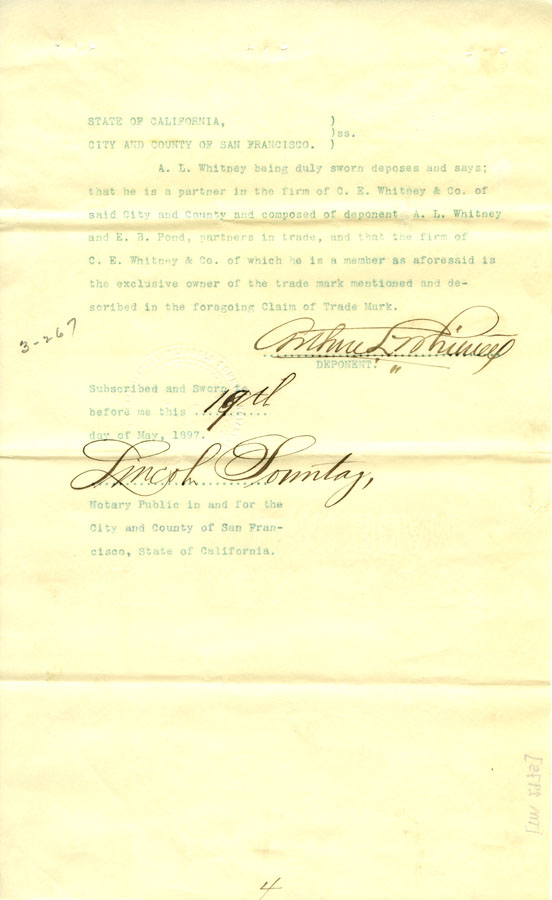 STATE OF CALIFORNIA, )
)ss.
CITY AND COUNTY OF SAN FRANCISCO. )
A. L. Whitney being duly sworn deposes and says;
that he is a partner in the firm of C. E. Whitney & Co. of
said City and County and composed of deponent A. L. Whitney
and E. B. Pond, partners in trade, and that the firm of
C. E. Whitney & Co. of which he is a member as aforesaid is
the exclusive owner of the trade mark mentioned and de-
scribed in the foregoing Claim of Trade Mark.
3-267
Arthur L Whitney
DEPONENT.
Subscribed and Sworn to
before me this 19th
day of May, 1897.
Lincoln Sonntag,
Notary Public in and for the
City and County of San Fran-
cisco, State of California.
4